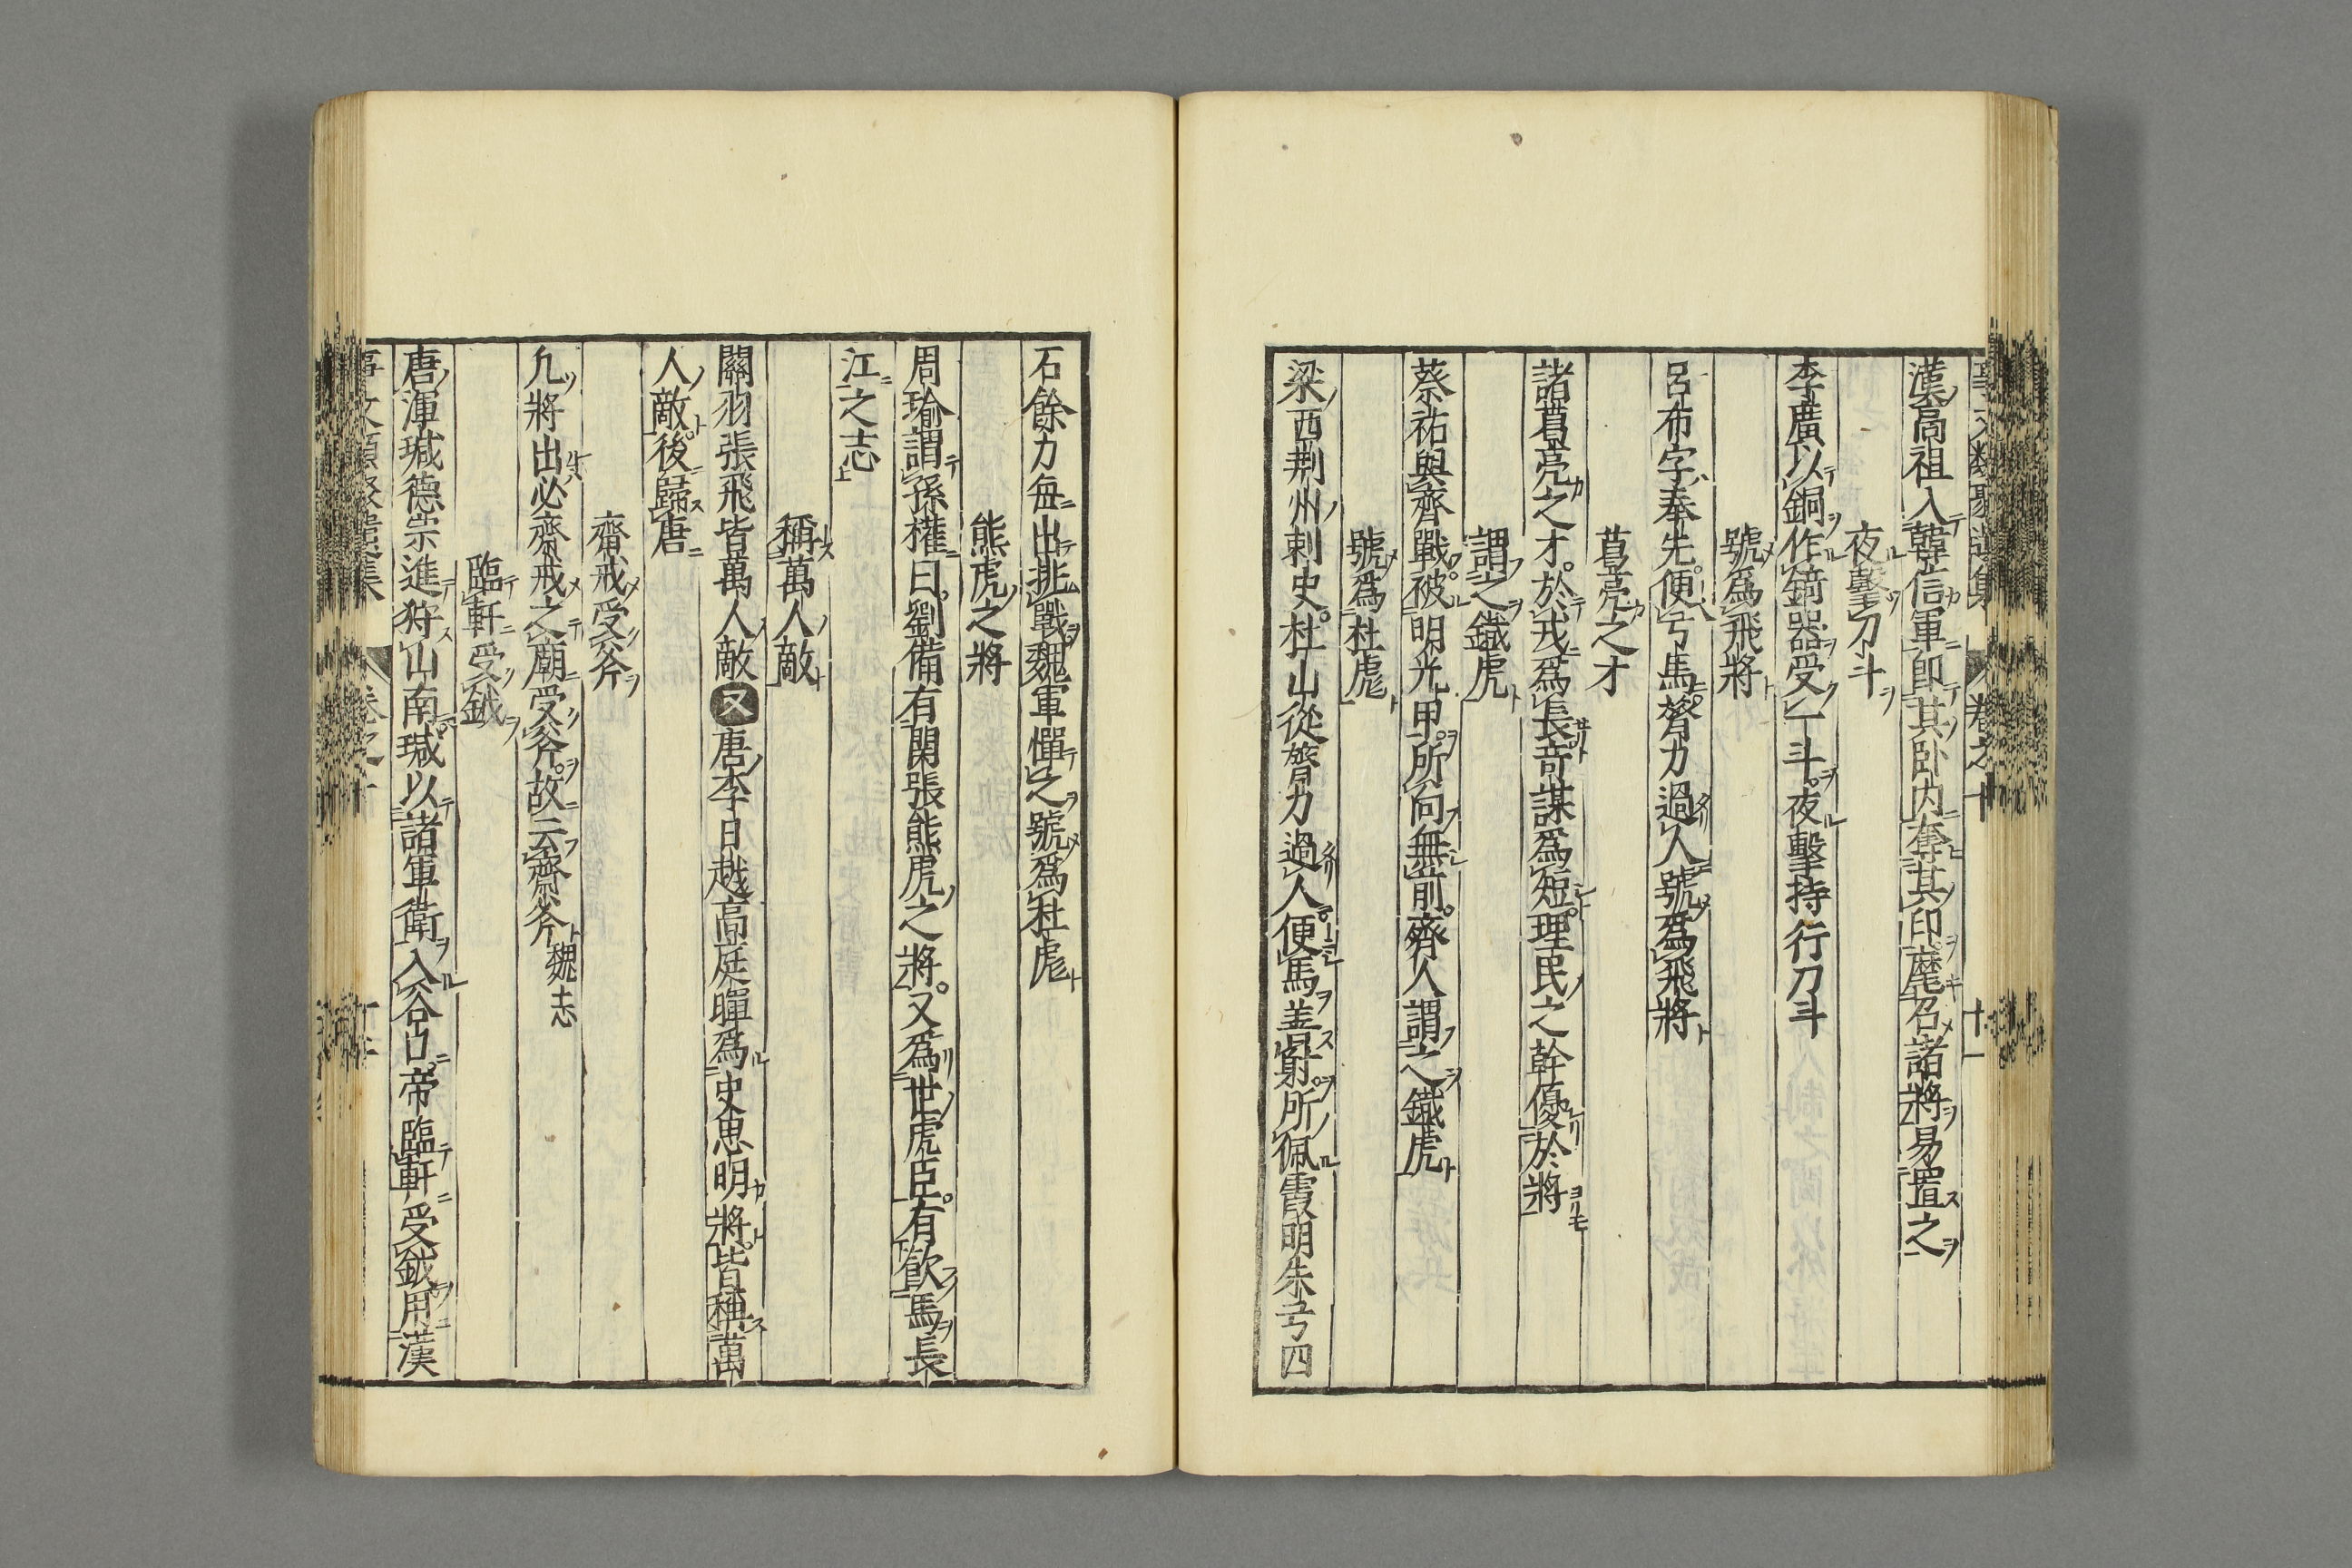 漢高祖入韓信軍即其卧内奪其印麾召諸將易置之
夜擊刀斗
李廣以銅作鐎器受一斗夜擊持行刀斗
號爲飛將
呂布字奉先便弓馬膂力過人號爲飛將
葛亮之才
諸葛亮之才於戎爲長奇謀爲短理民之幹優於將
謂之鐵虎
蔡祐與齊戰被明光甲所向無前齊人謂之鐵虎
號爲杜彪
梁西荆州刺史杜山從膂力過人便馬善射所佩霞明朱弓四
石餘力每出挑戰魏軍憚之號爲杜彪
熊虎之將
周瑜謂孫權曰劉備有関張熊虎之將又爲世虎臣有飲馬長
江之志
稱萬人敵
關羽張飛皆萬人敵又唐李日越高庭暉爲史思明將皆稱萬
人敵後歸唐
齋戒受斧
凢將出必齋戒之廟受斧故云齋斧魏志
臨軒受鉞
唐渾瑊德宗進狩山南瑊以諸軍衛入谷口帝臨軒受鉞用漢